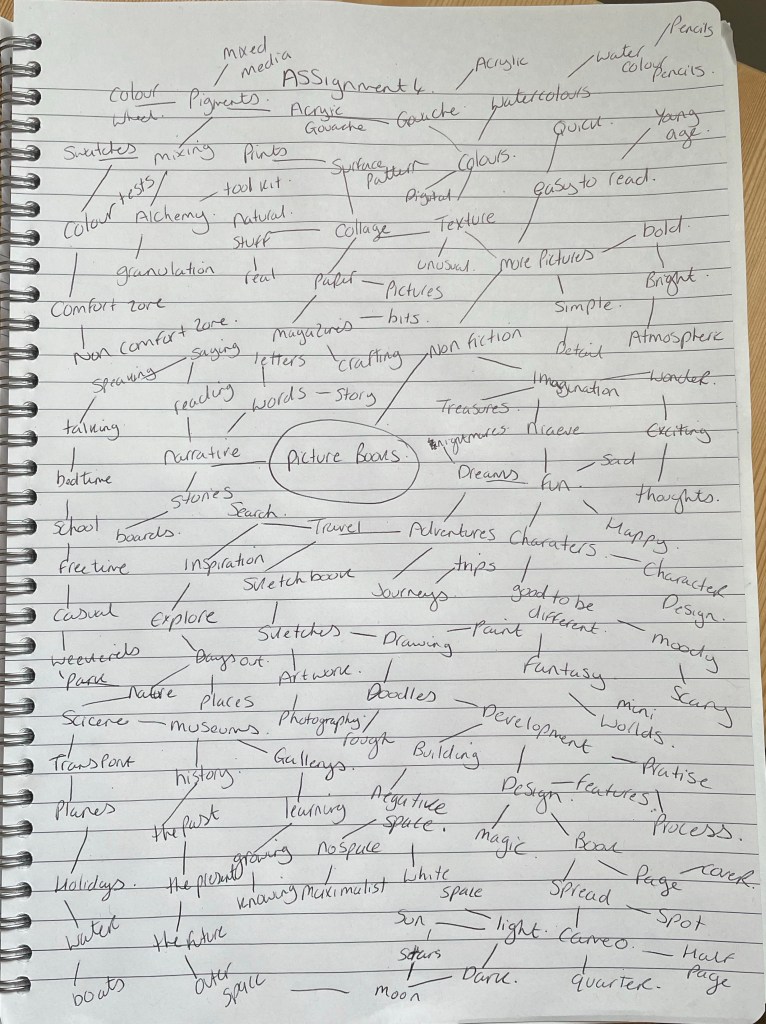 Pencils
mixed media
Assignment 4.
Acrylic
water colour pencils.
Colour wheel.
Pigments.
Acrylic Gouache
Gouache.
watercolours
Quick.
Young age.
Swatches
mixing
Prints
Surface Pattern
Colours.
easy to read.
Colour tests
tool kit.
Digital
Alchemy.
Natural stuff
Collage
Texture
bold.
granulation
real
unusual.
more Pictures
Paper
Pictures
Bright.
Comfort zone
Simple.
magazines
bits.
Non comfort zone.
Non fiction
Detail
Atmosphere
saying
letters
crafting
speaking
Imagination
Wonder.
reading
words
Story
Treasures.
talking
nightmares
Niaeve
Exciting
narrative
Picture Books.
bedtime
Dreams
fun.
Sad
thoughts.
Stories
Search.
School
boards.
Travel
Adventures
Charaters
Happy.
free time
Inspiration
Sketchbook
Journeys.
trips
Character Design.
good to be different.
Casual
Explore
Sketches
Drawing
Paint
moody
weekends
Days out.
Artwork.
Fantasy
Park
Nature
Places
Doodles
Scary
mini worlds.
Scicene
museums.
Photography
rough
Development
Transport
history.
Gallerys.
Building
Pratise
Planes
the past
learning
Negative space.
Design.
features.
Process.
magic.
Book
growing
no space
Holidays.
the present
knowing
maximalist
White space
Spread
Page
cover.
water
the future
Sun
light.
Cameo.
Spot
stars
Half Page
boats
outer space
moon
Dark.
quarter.